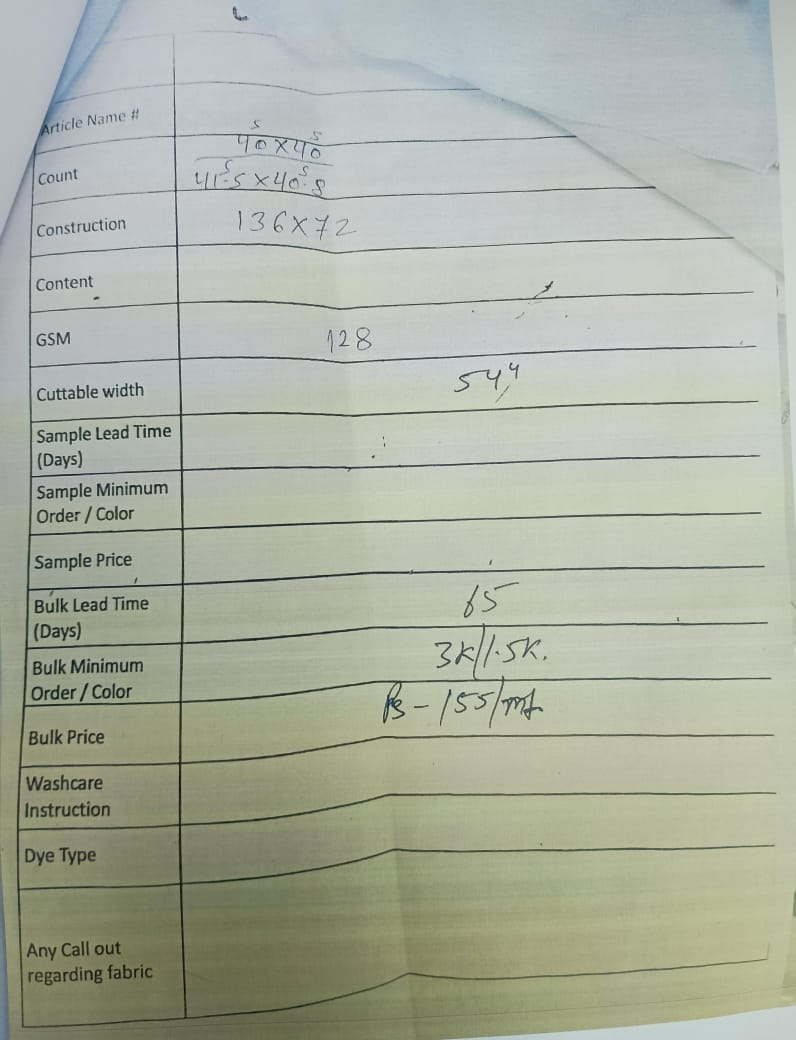 Article Name #
40sX40s
Count
41.5sX40.8s
Construction 136X72
Content
GSM 128
Cuttable width 54"
Sample Lead Time
(Days)
Sample Minimum
Order / Color
Sample Price
Bulk Lead Time 65
(Days)
Bulk Minimum 3K/1.5K.
Order / Color
Bulk Price Rs-155/mt.
Washcare
Instruction
Dye Type
Any Call out
regarding fabric